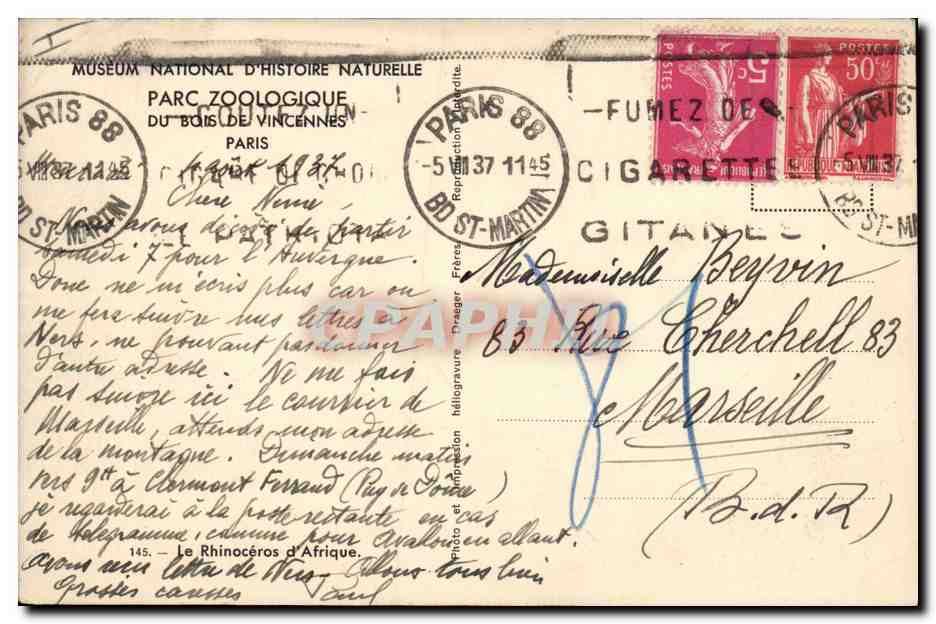 MUSÉUM NATIONAL D'HISTOIRE NATURELLE
PARC ZOOLOGIQUE
DU BOIS DE VINCENNES
PARIS
PARIS 88
-5 VIII 37 11 45
BD ST-MARTIN
PARIS 88
-5 VIII 37 11 45
BD ST-MARTIN
-FUMEZ DES-
CIGARETTES
GITANES
POSTES 5c
POSTES 50c
PARIS 88
-5 VIII 37
BD ST-M
août 1937
Chère Ninie,
Nous avons décidé de partir
samedi 7 pour l'Auvergne.
Donc ne m'écris plus car on
me fera suivre mes lettres à
Ners, ne pouvant pas donner
d'autre adresse. Ne me fais
pas suivre ici le courrier de
Marseille, attends mon adresse
de la montagne. Dimanche matin
vers 9h à Clermont Ferrand (Puy de Dôme)
je regarderai à la poste restante en cas
de télégramme, comme pour Avallon en allant.
145. — Le Rhinocéros d'Afrique.
avons reçu lettre de Ners. Allons tous bien
Grosses caresses Paul
Photo et impression héliogravure Draeger Frères. Reproduction interdite.
Mademoiselle Beyvin
83 Rue Cherchell 83
Marseille
(B.d.R)
CPAPHIL